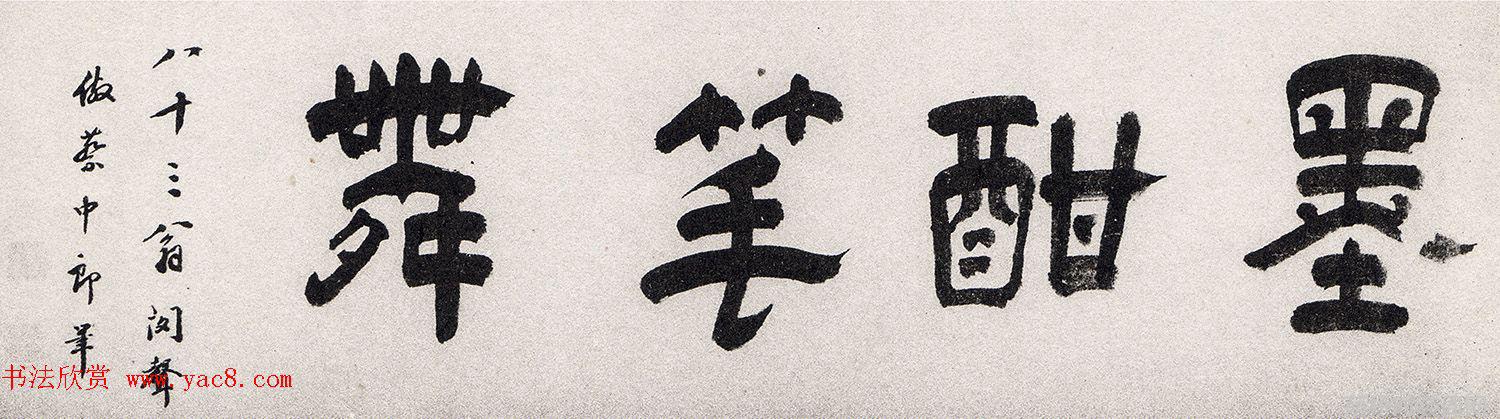 墨酣笔舞
八十三翁閔聲
倣蔡中郎筆
书法欣赏 www.yac8.com